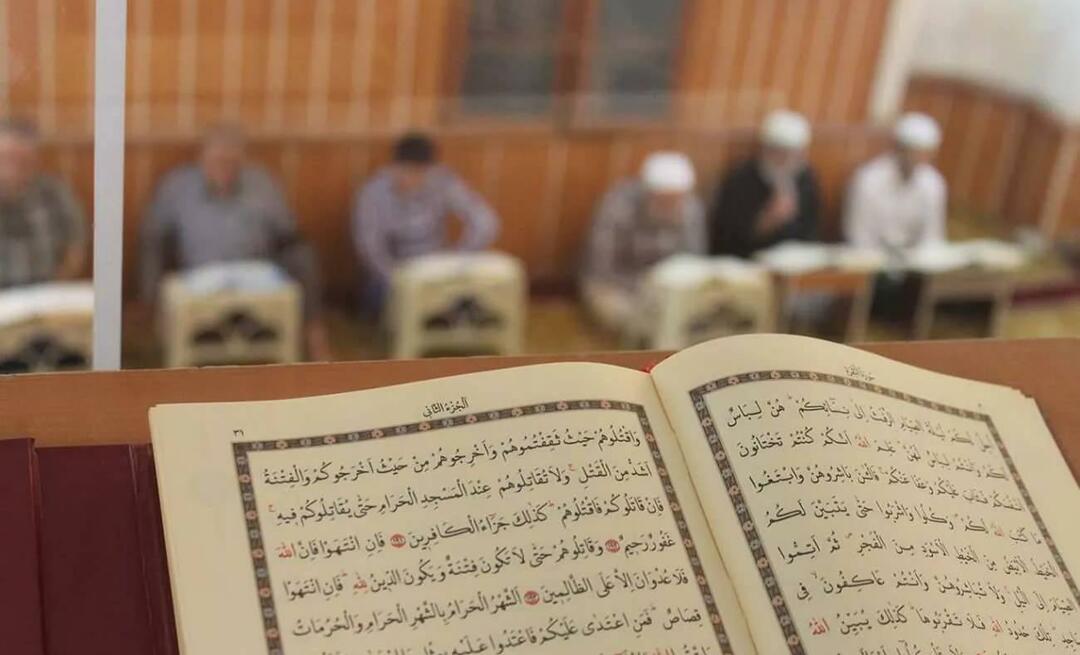 سورة البقرة
اُحِلَّ لَكُمْ لَيْلَةَ الصِّيَامِ الرَّفَثُ اِلٰى نِسَٓائِكُمْ هُنَّ لِبَاسٌ
لَكُمْ وَاَنْتُمْ لِبَاسٌ لَهُنَّ عَلِمَ اللّٰهُ اَنَّكُمْ كُنْتُمْ تَخْتَانُونَ
اَنْفُسَكُمْ فَتَابَ عَلَيْكُمْ وَعَفَا عَنْكُمْ فَالْٰنَ بَاشِرُوهُنَّ وَابْتَغُوا
مَا كَتَبَ اللّٰهُ لَكُمْ وَكُلُوا وَاشْرَبُوا حَتّٰى يَتَبَيَّنَ لَكُمُ
الْخَيْطُ الْاَبْيَضُ مِنَ الْخَيْطِ الْاَسْوَدِ مِنَ الْفَجْرِ ثُمَّ اَتِمُّوا
الصِّيَامَ اِلَى الَّيْلِ وَلَا تُبَاشِرُوهُنَّ وَاَنْتُمْ عَاكِفُونَ فِي
تِلْكَ حُدُودُ اللّٰهِ فَلَا تَقْرَبُوهَا كَذٰلِكَ يُبَيِّنُ اللّٰهُ
اَلْجُزْءُ الثَّانِي
وَاقْتُلُوهُمْ حَيْثُ ثَقِفْتُمُوهُمْ وَاَخْرِجُوهُمْ مِنْ حَيْثُ اَخْرَجُوكُمْ وَالْفِتْنَةُ
اَشَدُّ مِنَ الْقَتْلِ وَلَا تُقَاتِلُوهُمْ عِنْدَ الْمَسْجِدِ الْحَرَامِ حَتّٰى يُقَاتِلُوكُمْ فِيهِ
فَاِنْ قَاتَلُوكُمْ فَاقْتُلُوهُمْ كَذٰلِكَ جَزَٓاءُ الْكَافِرِينَ فَاِنِ انْتَهَوْا فَاِنَّ اللّٰهَ
غَفُورٌ رَحِيمٌ وَقَاتِلُوهُمْ حَتّٰى لَا تَكُونَ فِتْنَةٌ وَيَكُونَ الدِّينُ لِلّٰهِ فَاِنِ انْتَهَوْا
فَلَا عُدْوَانَ اِلَّا عَلَى الظَّالِمِينَ اَلشَّهْرُ الْحَرَامُ بِالشَّهْرِ الْحَرَامِ وَالْحُرُمَاتُ
قِصَاصٌ فَمَنِ اعْتَدٰى عَلَيْكُمْ فَاعْتَدُوا عَلَيْهِ بِمِثْلِ مَا